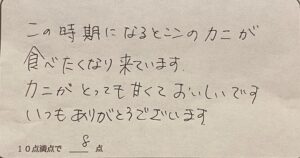 この時期になるとここのカニが
食べたくなり来ています.
カニがとっても甘くておいしいです
いつもありがとうございます
10点満点で 8 点